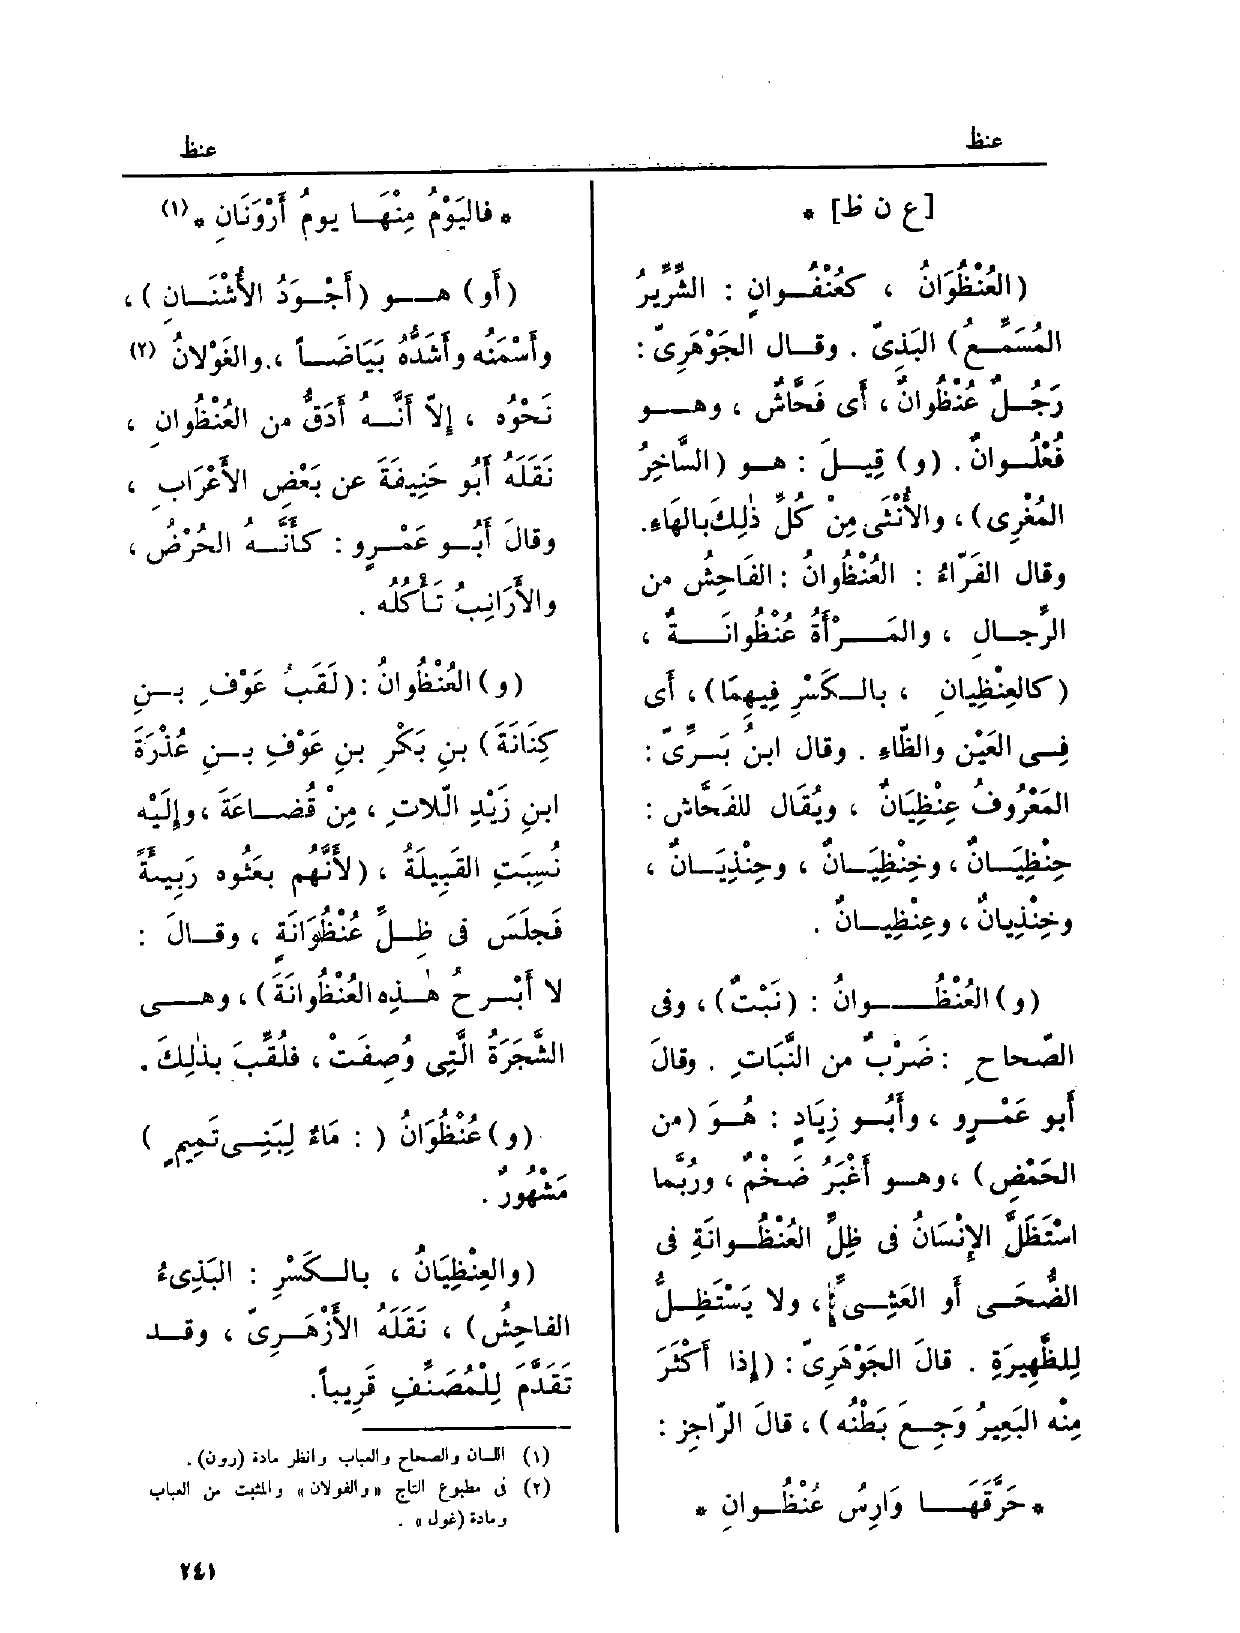 عنظ
عنظ
[ ع ن ظ ] *
(العُنْظُوَانُ ، كعُنْفُــوانٍ : الشِّرِّيرُ
المُسَمِّــعُ) البَذِىّ . وقــال الجَوْهَرِىّ :
رَجُــلٌ عُنْظُوانٌ ، أَى فَحَّاشٌ ، وهـــو
فُعْلُــوانٌ . (و) قِيــلَ : هــو (السَّاخِرُ
المُغْرِى) ، والأُنْثَى مِنْ كُلِّ ذٰلِكَ بالهَاءِ.
وقال الفَرّاءُ : العُنْظُوانُ : الفَاحِشُ من
الرِّجــالِ ، والمَـــرْأَةُ عُنْظُوانَـــةٌ ،
(كالعِنْظِيانِ ، بالــكَسْرِ فِيهِمَا) ، أَى
فِــى العَيْنِ والظّاءِ . وقال ابنُ بَــرِّىّ :
المَعْرُوفُ عِنْظِيَانٌ ، ويُقَال للفَحّاشِ :
حِنْظِيَــانٌ ، وخِنْظِيَــانٌ ، وحِنْذِيَــانٌ ،
وخِنْذِيانٌ ، وعِنْظِيــانٌ .
(و) العُنْظُـــــوانُ : (نَبْتٌ) ، وفى
الصّحاحِ : ضَرْبٌ من النَّبَاتِ . وقالَ
أَبو عَمْــرٍو ، وأَبُــو زِيَادٍ : هُــوَ (من
الحَمْضِ) ، وهــو أَغْبَرُ ضَخْمٌ ، ورُبَّما
اسْتَظَلَّ الإِنْسَانُ فى ظِلِّ العُنْظُــوانَةِ فى
الضُّحَــى أَو العَشِــىِّ ، ولا يَسْتَظِــلُّ
لِلظَّهِيرَةِ . قالَ الجَوْهَرِىّ : (إِذا أَكْثَرَ
مِنْه البَعِيرُ وَجِــعَ بَطْنُه) ، قالَ الرّاجِز :
* حَرَّقَهَـــا وَارِسُ عُنْظُــوانِ *
* فاليَوْمُ مِنْهَــا يومُ أَرْوَنَانِ * (١)
(أَو) هـــو (أَجْــوَدُ الأُشْنَــانِ ) ،
وأَسْمَنُه وأَشَدُّهُ بَيَاضَــاً ، والغَوْلانُ (٢)
نَحْوُه ، إِلاّ أَنَّــهُ أَدَقُّ من العُنْظُوانِ ،
نَقَلَهُ أَبُو حَنِيفَةَ عن بَعْضِ الأَعْرَابِ ،
وقالَ أَبُــو عَمْــرٍو : كأَنَّــهُ الحُرْضُ ،
والأَرَانِبُ تَــأْكُلُه .
(و) العُنْظُوانُ : (لَقَبُ عَوْفِ بــنِ
كِنَانَةَ) بنِ بَكْرِ بنِ عَوْفِ بــنِ عُذْرَةَ
ابنِ زَيْدِ الّلاتِ ، مِنْ قُضَــاعَةَ ، وإِلَيْه
نُسِبَتِ القَبِيلَةُ ، (لأَنَّهُم بعَثُوه رَبِيئَةً
فَجلَسَ فى ظِــلِّ عُنْظُوَانَةٍ ، وقــالَ :
لا أَبْــرحُ هٰــذِه العُنْظُوانَةَ) ، وهـــى
الشَّجَرَةُ الَّتِى وُصِفَتْ ، فلُقِّبَ بذٰلِكَ .
(و) عُنْظُوَانُ ( : مَاءٌ لِبَنِــى تَمِيمٍ )
مَشْهُورٌ .
(والعِنْظِيَانُ ، بالــكَسْرِ : البَذِىءُ
الفاحِشُ) ، نَقَلَهُ الأَزْهَــرِىّ ، وقــد
تَقَدَّمَ لِلْمُصَنِّفِ قَرِيباً.
(١) اللسان والصحاح والعباب وانظر مادة (رون) .
(٢) فى مطبوع التاج «والفولان» والمثبت من العباب
ومادة (غول » .
٢٤١